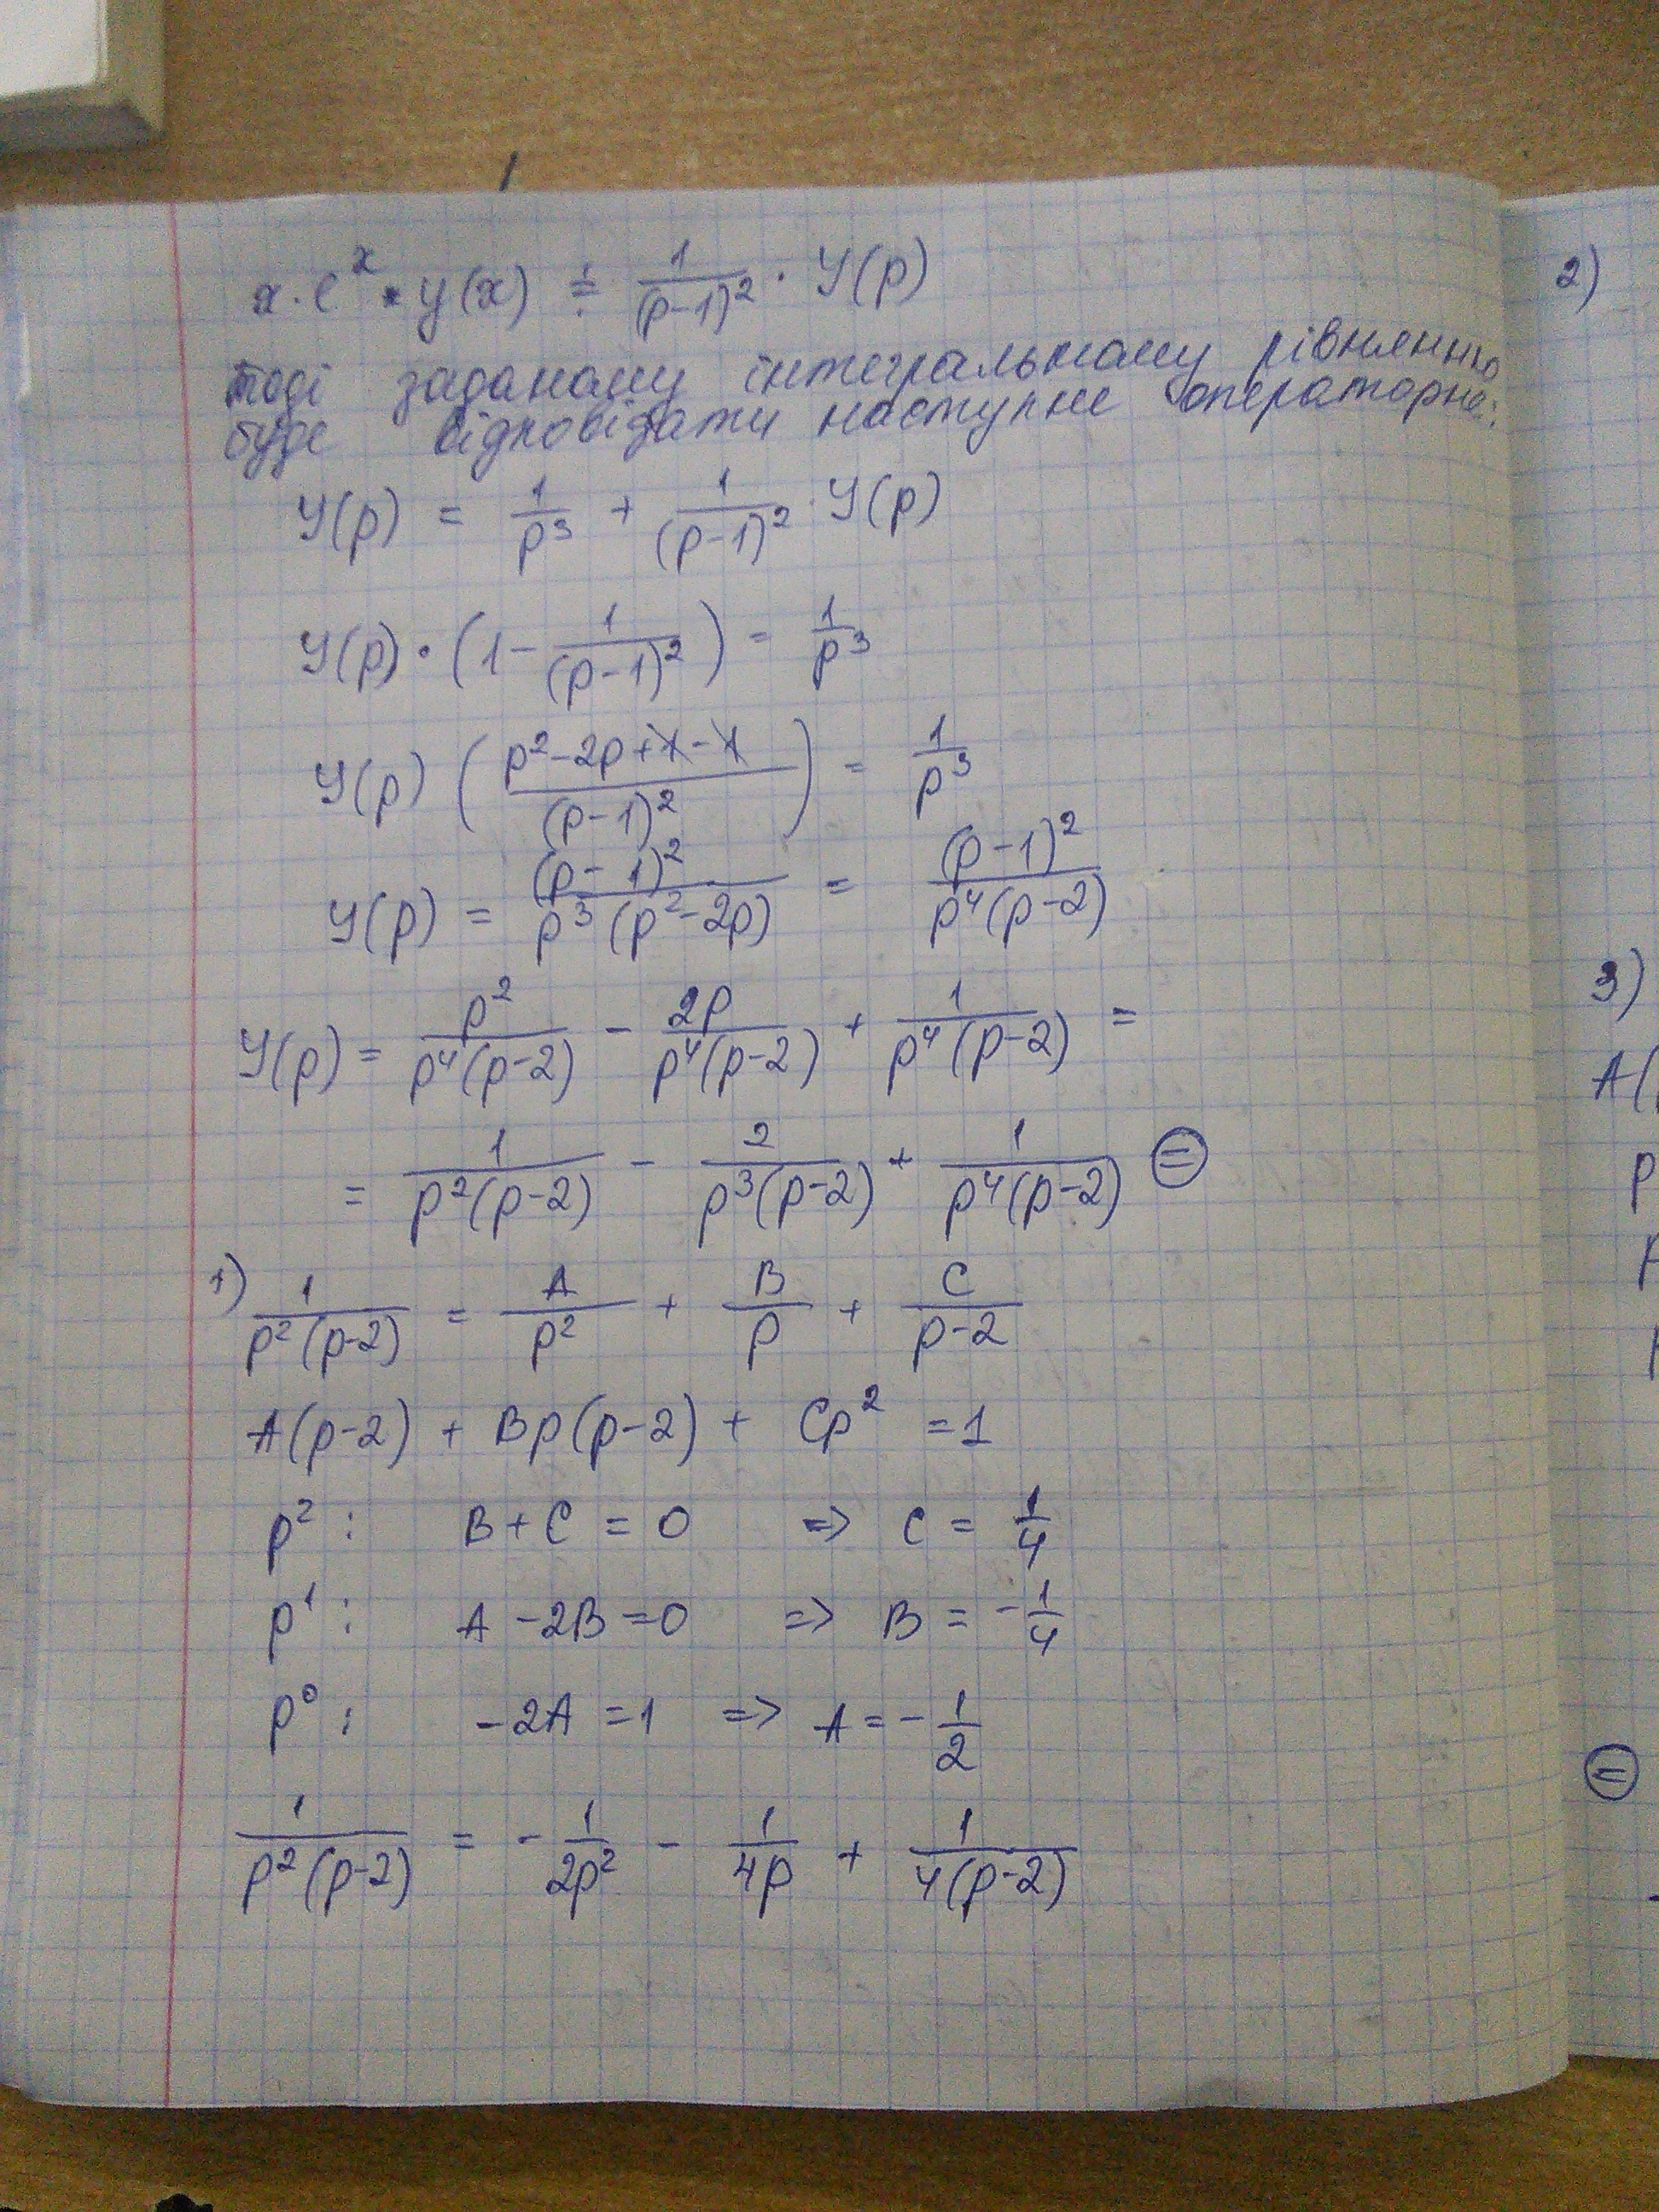 x · e^x * y(x) ≑ 1/(p-1)^2 · Y(p)
тоді заданому інтегральному рівнянню
буде відповідати наступне операторне:
Y(p) = 1/p^3 + 1/(p-1)^2 · Y(p)
Y(p) · (1 - 1/(p-1)^2) = 1/p^3
Y(p) ((p^2 - 2p + 1 - 1)/(p-1)^2) = 1/p^3
Y(p) = (p-1)^2/(p^3(p^2-2p)) = (p-1)^2/(p^4(p-2))
Y(p) = p^2/(p^4(p-2)) - 2p/(p^4(p-2)) + 1/(p^4(p-2)) =
= 1/(p^2(p-2)) - 2/(p^3(p-2)) + 1/(p^4(p-2)) ⊜
1) 1/(p^2(p-2)) = A/p^2 + B/p + C/(p-2)
A(p-2) + Bp(p-2) + Cp^2 = 1
p^2 : B + C = 0 => C = 1/4
p^1 : A - 2B = 0 => B = -1/4
p^0 : -2A = 1 => A = -1/2
1/(p^2(p-2)) = - 1/(2p^2) - 1/(4p) + 1/(4(p-2))
2)
3)
A(
p
⊜